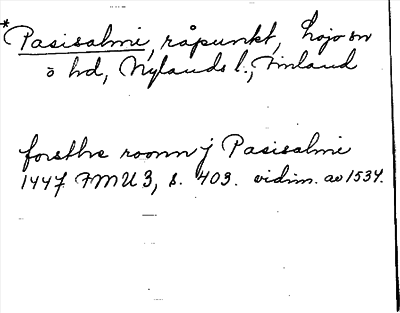 *Pasisalmi, råpunkt, Lojo sn
ö hd, Nylands l., Finland
forsthe roomn j Pasisalmi
1447 FMU 3, s. 403. vidim. av 1534.